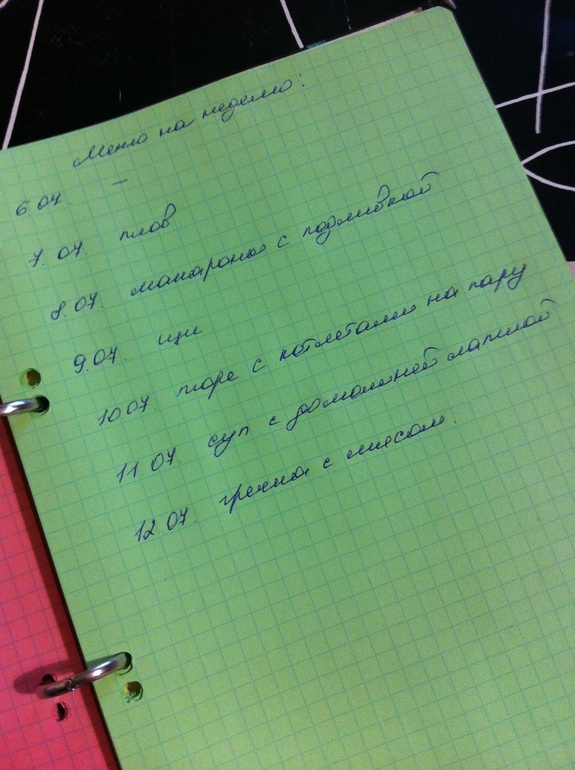 Меню на неделю:
6.07. —
7.07 плов
8.07. макароны с подливкой
9.07. щи
10.07. пюре с котлетами на пару
11.07 суп с домашней лапшой
12.07. гречка с мясом.